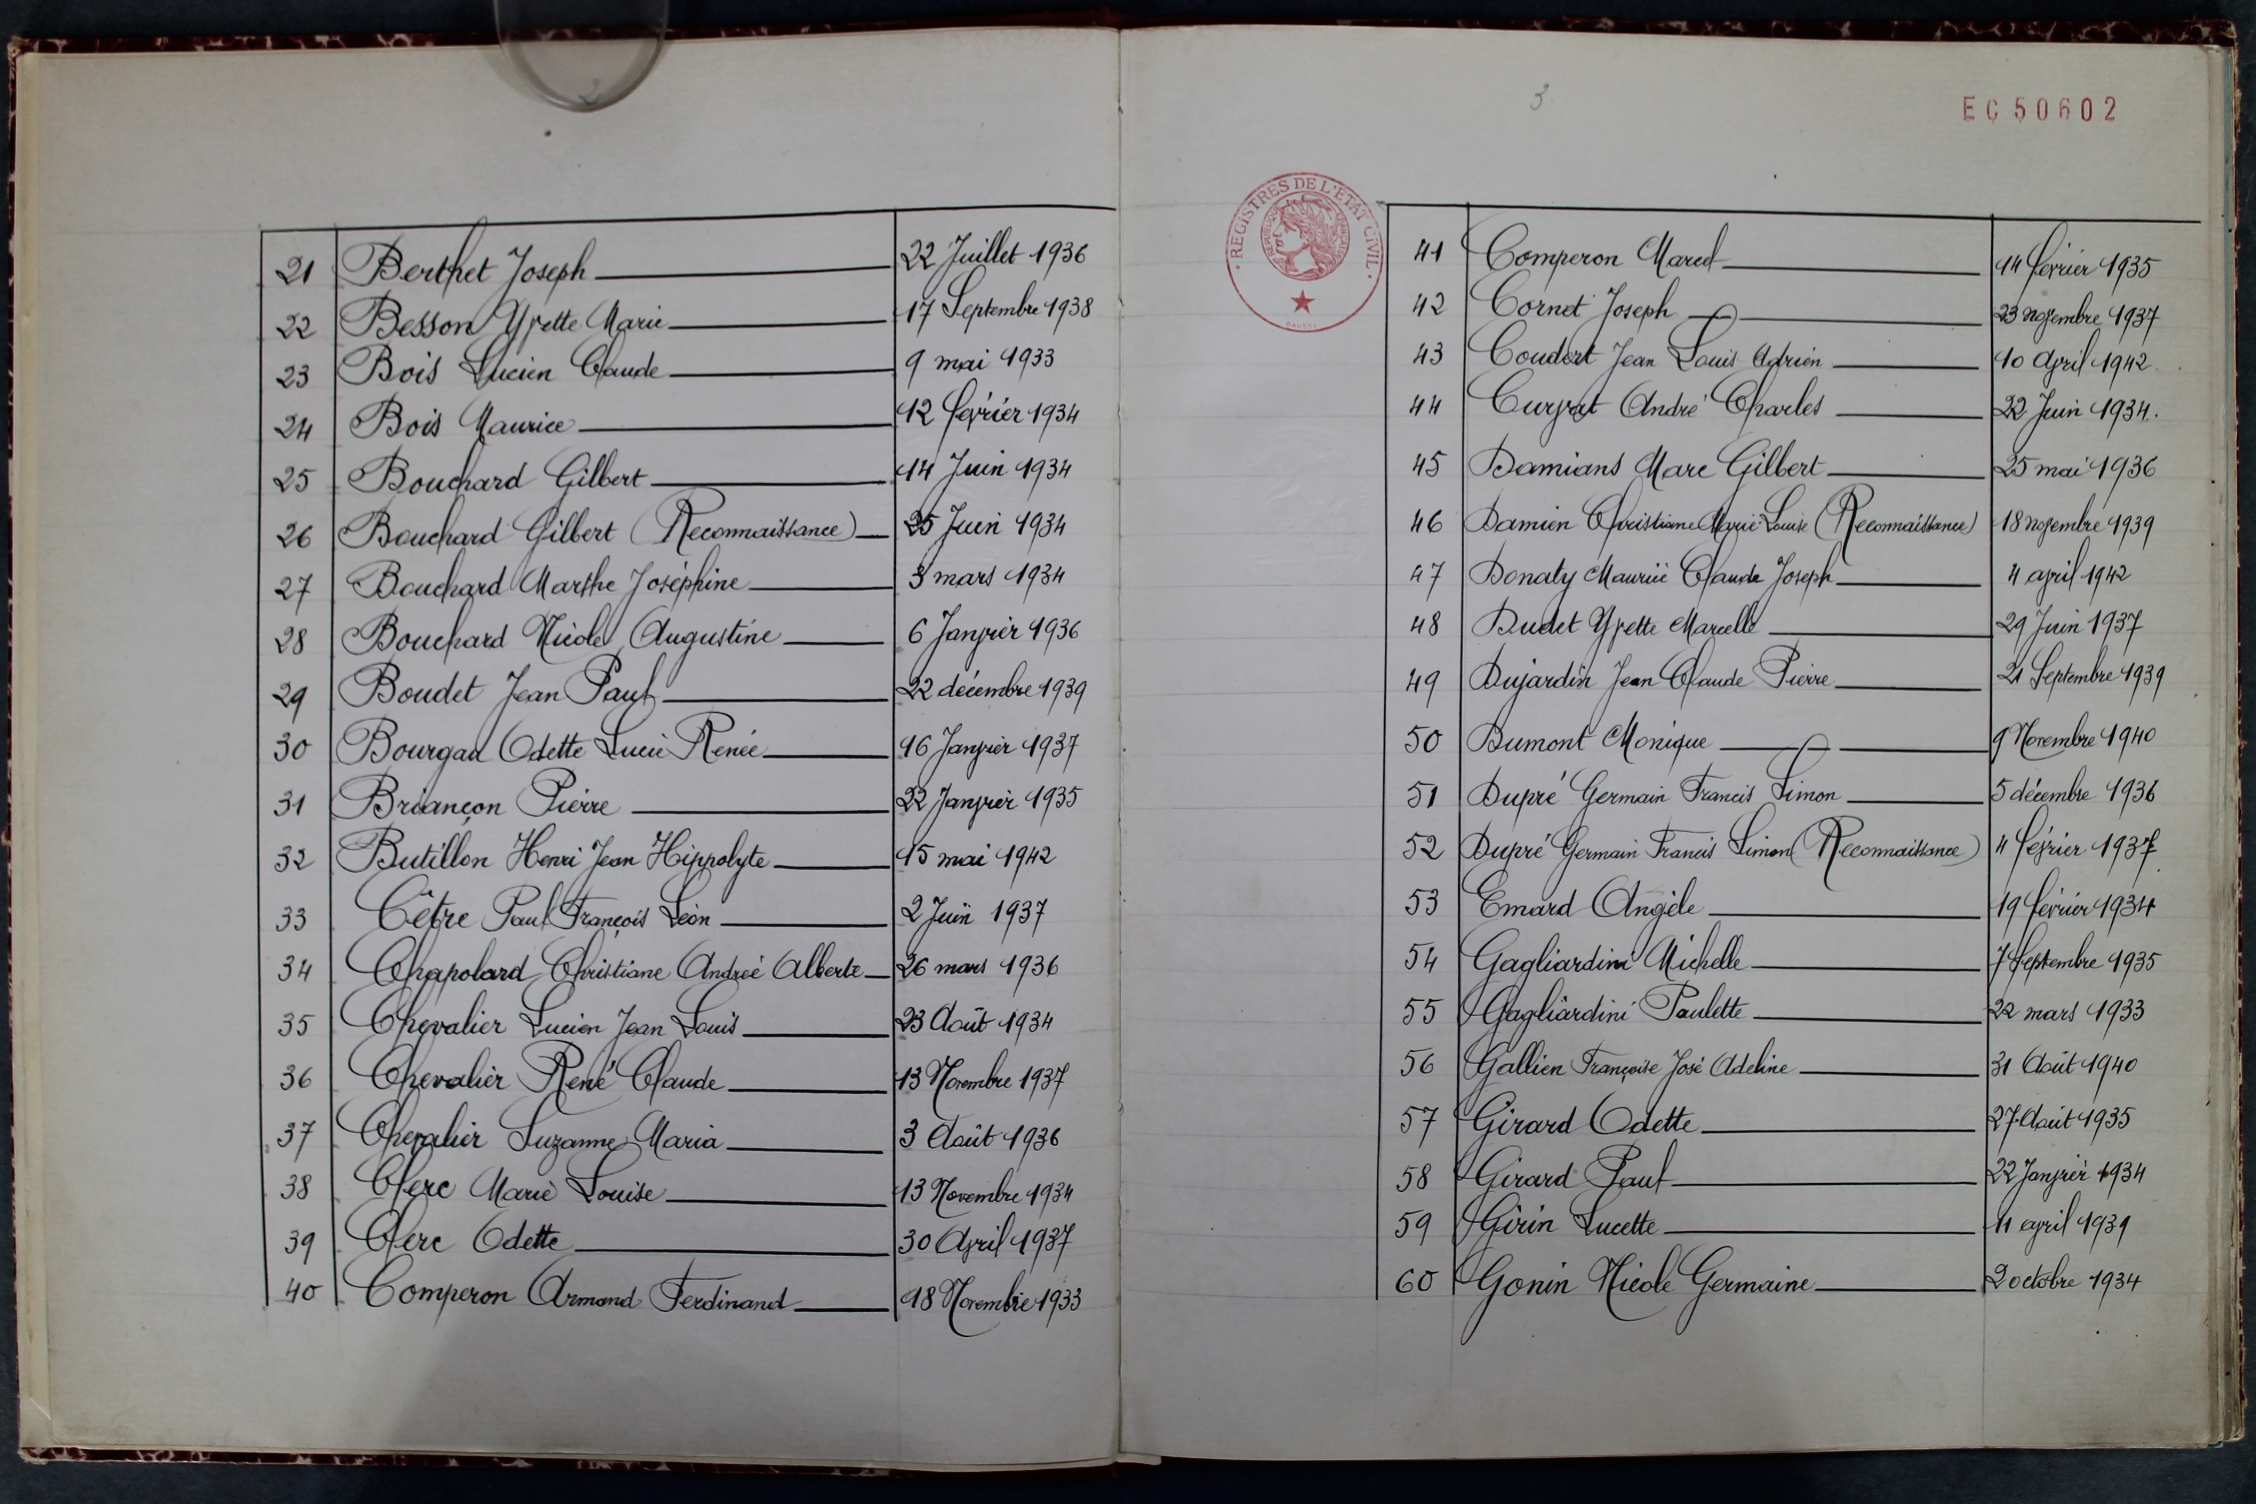 2
21 Berthet Joseph 22 Juillet 1936
22 Besson Yvette Marie 17 Septembre 1938
23 Bois Lucien Claude 9 mai 1933
24 Bois Maurice 12 février 1934
25 Bouchard Gilbert 14 Juin 1934
26 Bouchard Gilbert (Reconnaissance) 25 Juin 1934
27 Bouchard Marthe Joséphine 3 mars 1934
28 Bouchard Nicole Augustine 6 Janvier 1936
29 Boudet Jean Paul 22 décembre 1939
30 Bourgau Odette Lucie Renée 16 Janvier 1937
31 Briançon Pierre 22 Janvier 1935
32 Butillon Henri Jean Hippolyte 15 mai 1942
33 Cêtre Paul François Léon 2 Juin 1937
34 Chapolard Christiane Andrée Alberte 26 mars 1936
35 Chevalier Lucien Jean Louis 23 Août 1934
36 Chevalier René Claude 13 Novembre 1937
37 Chevalier Suzanne Maria 3 Août 1936
38 Clerc Marie Louise 13 Novembre 1934
39 Clerc Odette 30 Avril 1937
40 Comperon Armand Ferdinand 18 Novembre 1933
3
EC 50602
REGISTRES DE L'ETAT CIVIL
41 Comperon Marcel 14 février 1935
42 Cornet Joseph 23 novembre 1937
43 Coudert Jean Louis Adrien 10 Avril 1942
44 Curvat André Charles 22 Juin 1934.
45 Damians Marc Gilbert 25 mai 1936
46 Damien Christiane Marie Louise (Reconnaissance) 18 novembre 1939
47 Donaty Maurice Claude Joseph 4 avril 1942
48 Dudet Yvette Marcelle 29 Juin 1937
49 Dujardin Jean Claude Pierre 21 Septembre 1939
50 Dumont Monique 9 Novembre 1940
51 Dupré Germain Francis Simon 5 décembre 1936
52 Dupré Germain Francis Simon (Reconnaissance) 4 février 1937
53 Emard Angèle 19 février 1934
54 Gagliardini Michelle 7 Septembre 1935
55 Gagliardini Paulette 22 mars 1933
56 Gallien Françoise José Adeline 31 Août 1940
57 Girard Odette 27 Août 1935
58 Girard Paul 22 Janvier 1934
59 Girin Lucette 11 avril 1939
60 Gonin Nicole Germaine 2 octobre 1934